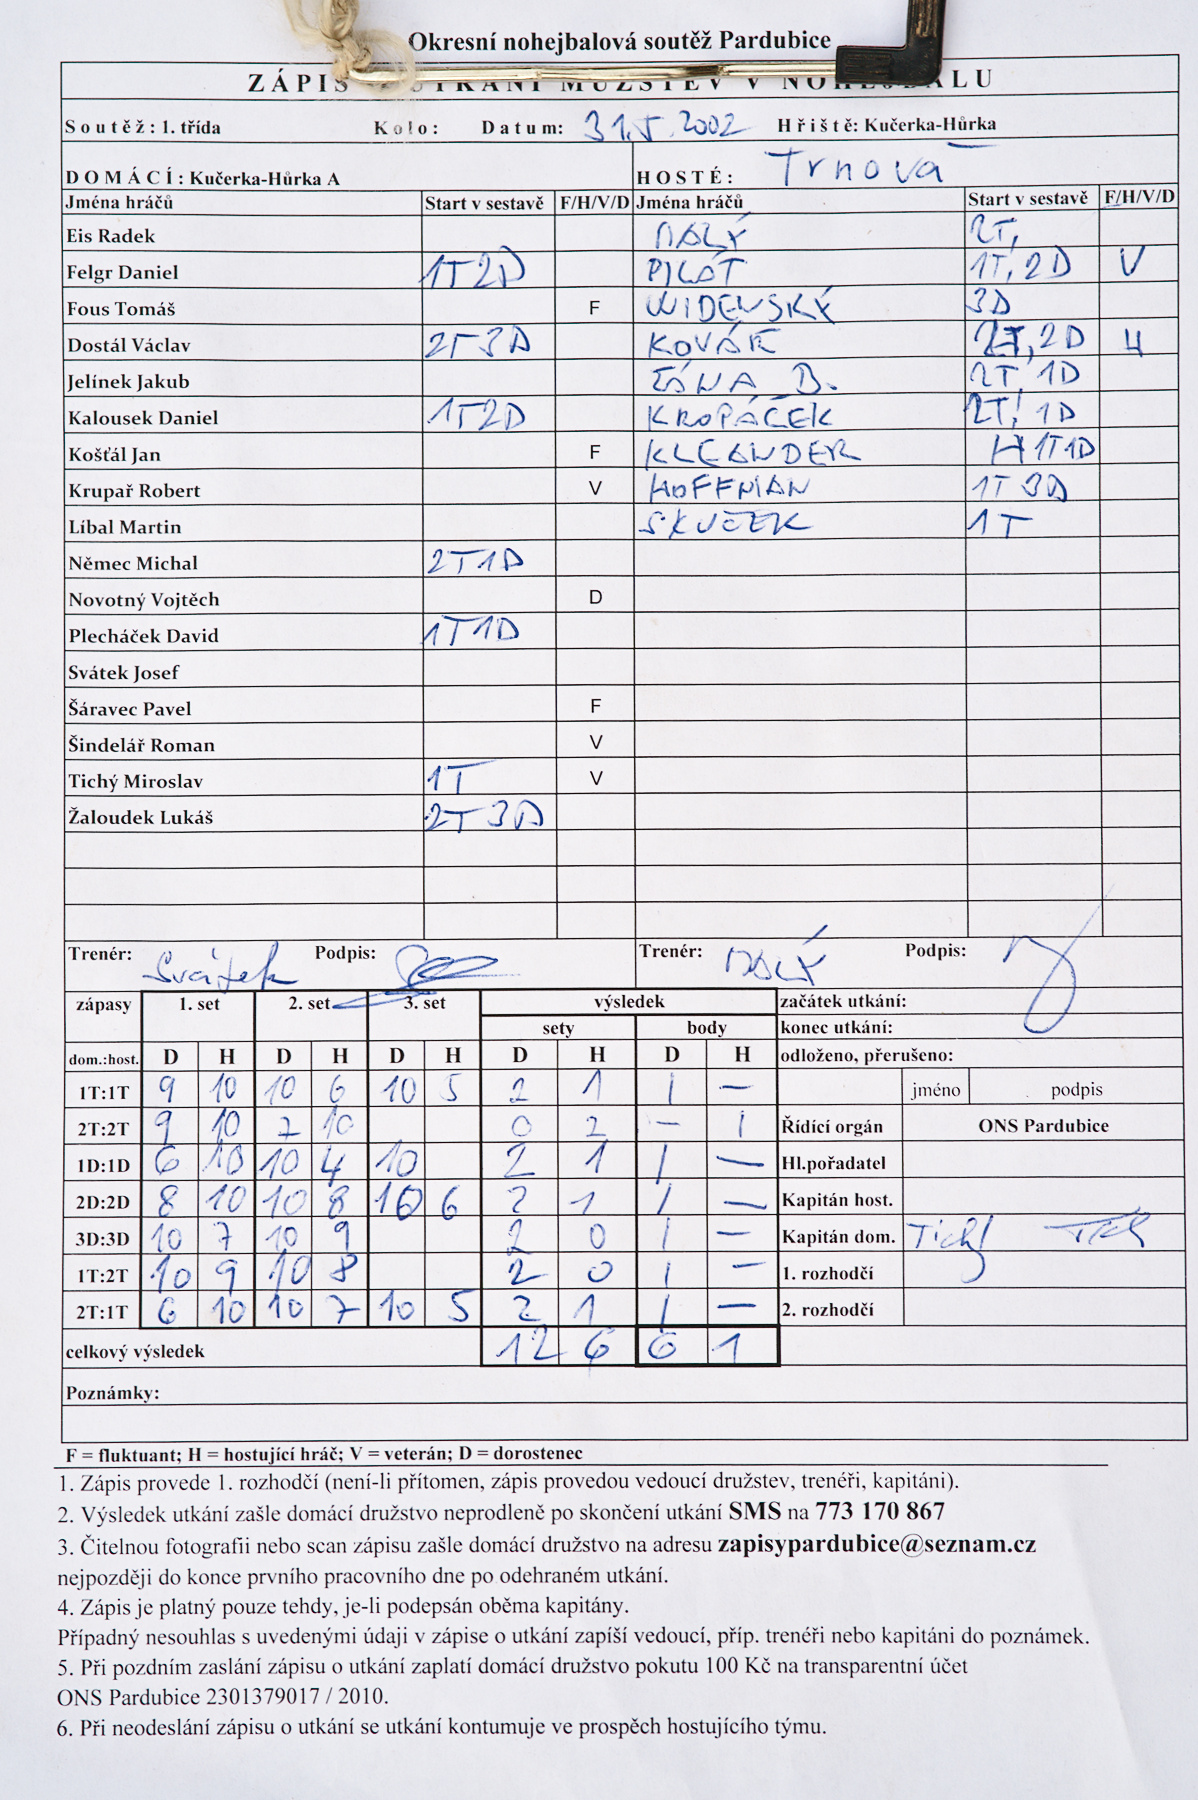 Okresní nohejbalová soutěž Pardubice
ZÁPIS UTKÁNÍ MUŽSTEV V NOHEJBALU
Soutěž: 1. třída Kolo: Datum: 31.5.2002 Hřiště: Kučerka-Hůrka
DOMÁCÍ: Kučerka-Hůrka A HOSTÉ: Trnová
Jména hráčů Start v sestavě F/H/V/D Jména hráčů Start v sestavě F/H/V/D
Eis Radek MALÝ 2T,
Felgr Daniel 1T2D PILÁT 1T, 2D V
Fous Tomáš F WIDENSKÝ 3D
Dostál Václav 2T3D KOVÁŘ 2T, 2D H
Jelínek Jakub B. 2T, 1D
Kalousek Daniel 1T2D KROPÁČEK 2T, 1D
Košťál Jan F KLEANDER 1T1D
Krupař Robert V HOFFMAN 1T 3D
Líbal Martin 1T
Němec Michal 2T1D
Novotný Vojtěch D
Plecháček David 1T1D
Svátek Josef
Šáravec Pavel F
Šindelář Roman V
Tichý Miroslav 1T V
Žaloudek Lukáš 2T 3D
Trenér: Svátek Podpis: Trenér: MALÝ Podpis:
zápasy 1. set 2. set 3. set výsledek začátek utkání:
sety body konec utkání:
dom.:host. D H D H D H D H D H odloženo, přerušeno:
1T:1T 9 10 10 6 10 5 2 1 1 – jméno podpis
2T:2T 9 10 7 10 0 2 – 1 Řídící orgán ONS Pardubice
1D:1D 6 10 10 4 10 2 1 1 – Hl.pořadatel
2D:2D 8 10 10 8 10 6 2 1 1 – Kapitán host.
3D:3D 10 7 10 9 2 0 1 – Kapitán dom. Tichý
1T:2T 10 9 10 8 2 0 1 – 1. rozhodčí
2T:1T 6 10 10 7 10 5 2 1 1 – 2. rozhodčí
celkový výsledek 12 6 6 1
Poznámky:
F = fluktuant; H = hostující hráč; V = veterán; D = dorostenec
1. Zápis provede 1. rozhodčí (není-li přítomen, zápis provedou vedoucí družstev, trenéři, kapitáni).
2. Výsledek utkání zašle domácí družstvo neprodleně po skončení utkání SMS na 773 170 867
3. Čitelnou fotografii nebo scan zápisu zašle domácí družstvo na adresu zapisypardubice@seznam.cz
nejpozději do konce prvního pracovního dne po odehraném utkání.
4. Zápis je platný pouze tehdy, je-li podepsán oběma kapitány.
Případný nesouhlas s uvedenými údaji v zápise o utkání zapíší vedoucí, příp. trenéři nebo kapitáni do poznámek.
5. Při pozdním zaslání zápisu o utkání zaplatí domácí družstvo pokutu 100 Kč na transparentní účet
ONS Pardubice 2301379017 / 2010.
6. Při neodeslání zápisu o utkání se utkání kontumuje ve prospěch hostujícího týmu.